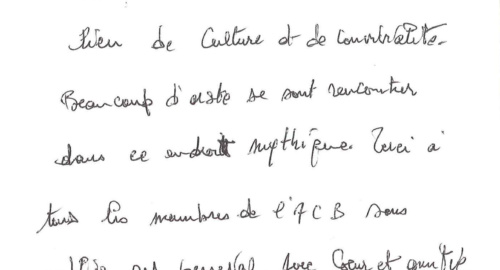 Lieu de Culture et de convivialité.
Beaucoup d'artiste se sont rencontrer
dans ce endroit mythique. Merci à
tous les membres de l'ACB sans
avec Cœur et